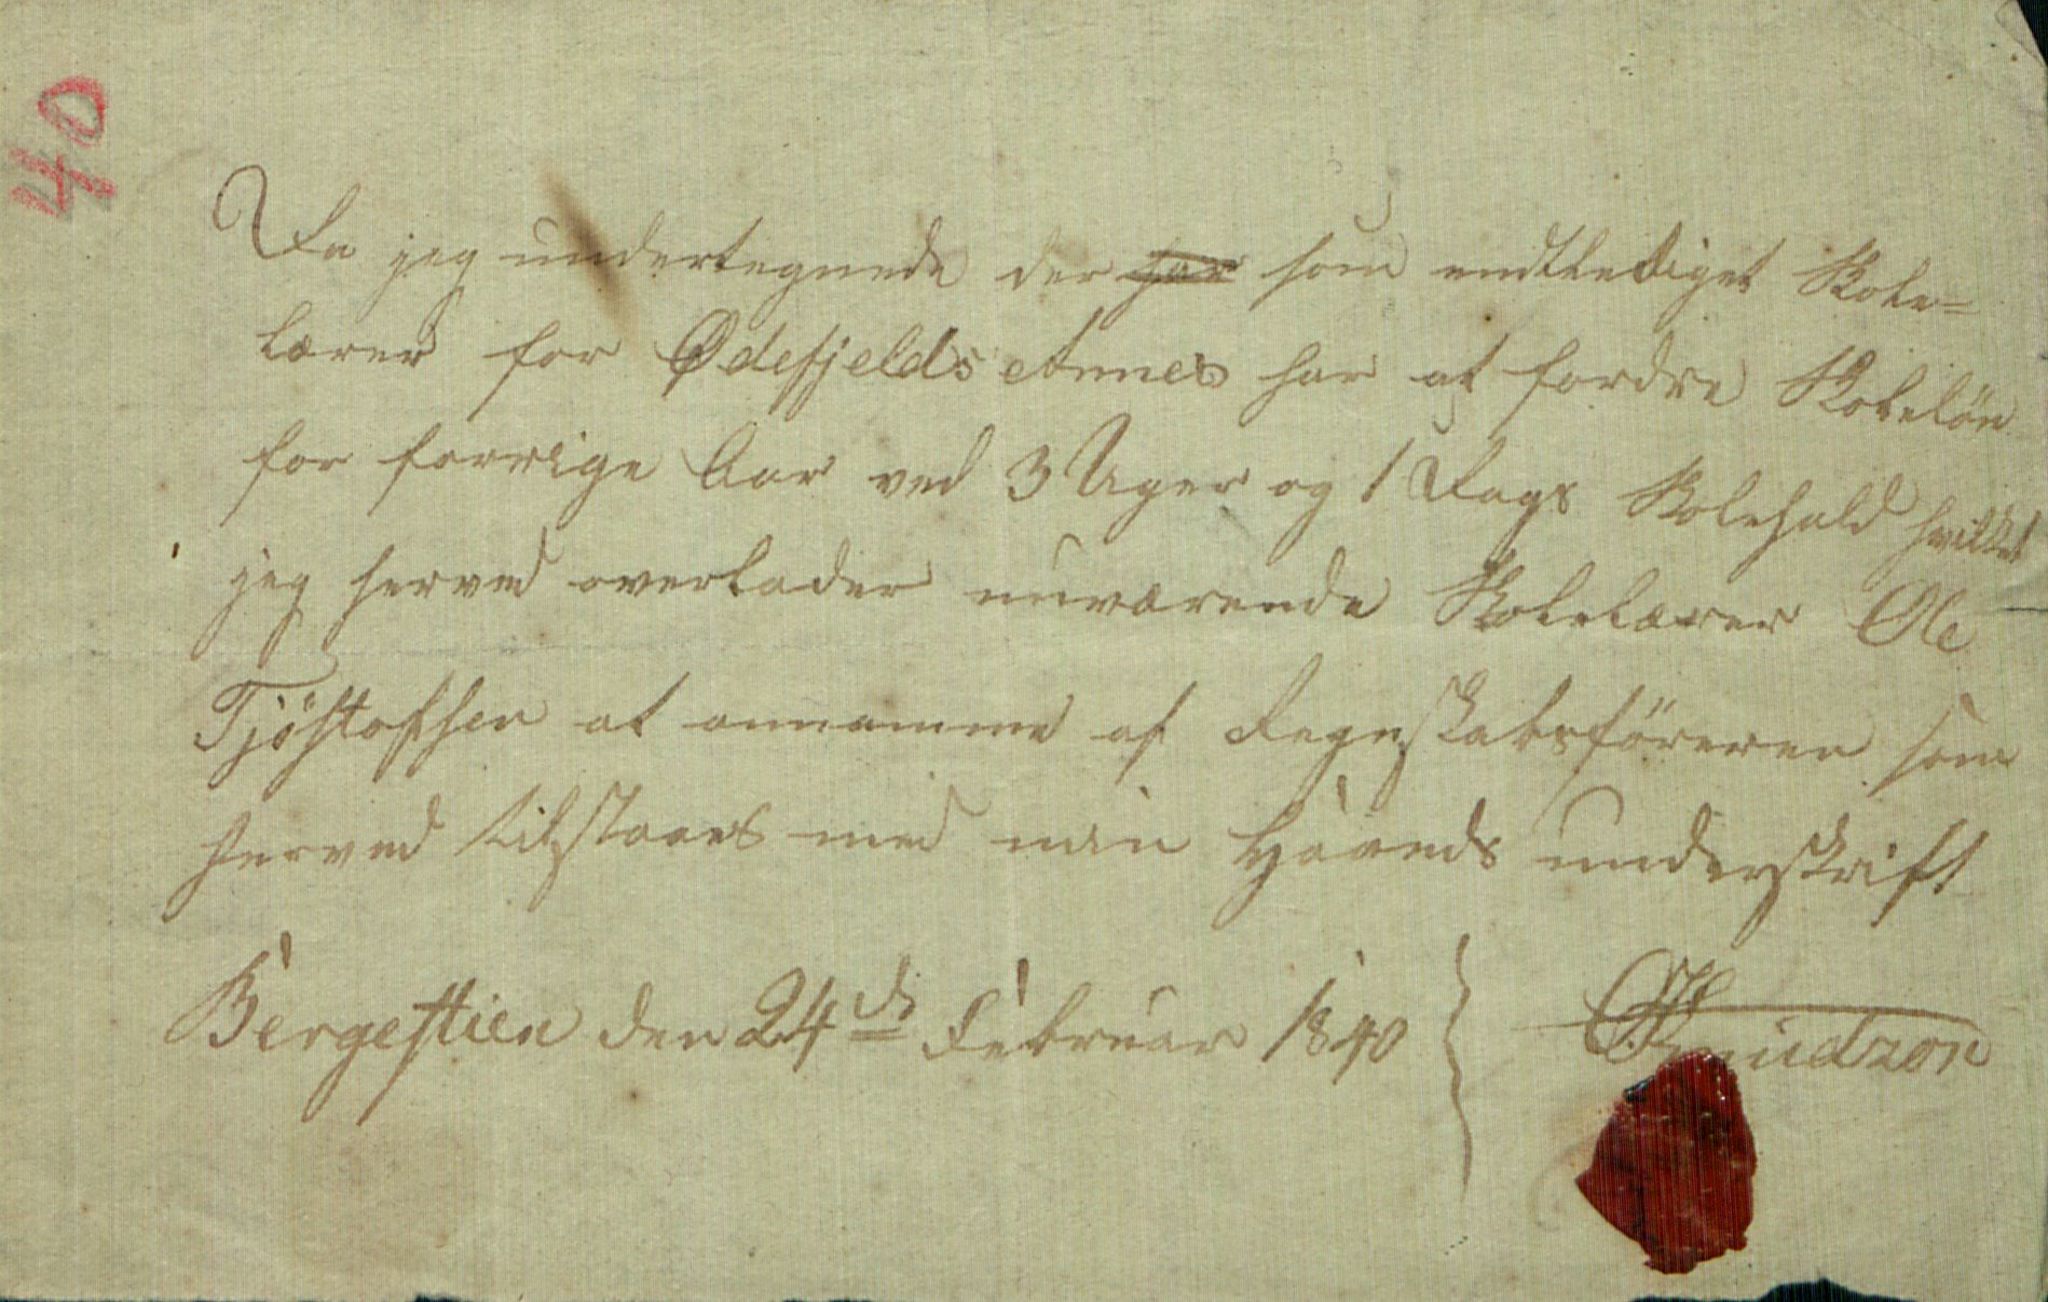 40
Da jeg undertegnede der har som endtlediget Skole=
lærer for Ødefjelds Annex har at fordre Skolelön
for forrige Aar ved 3 Uger og 1 Dags Skolehald hvilket
jeg herved overlader nuværende Skolelærer Ole
Tjöstofsen at annamme af Regnskabsföreren som
herved tilstaaes med min Haands underskrift
Bergestien den 24de Februar 1840 Knudzon